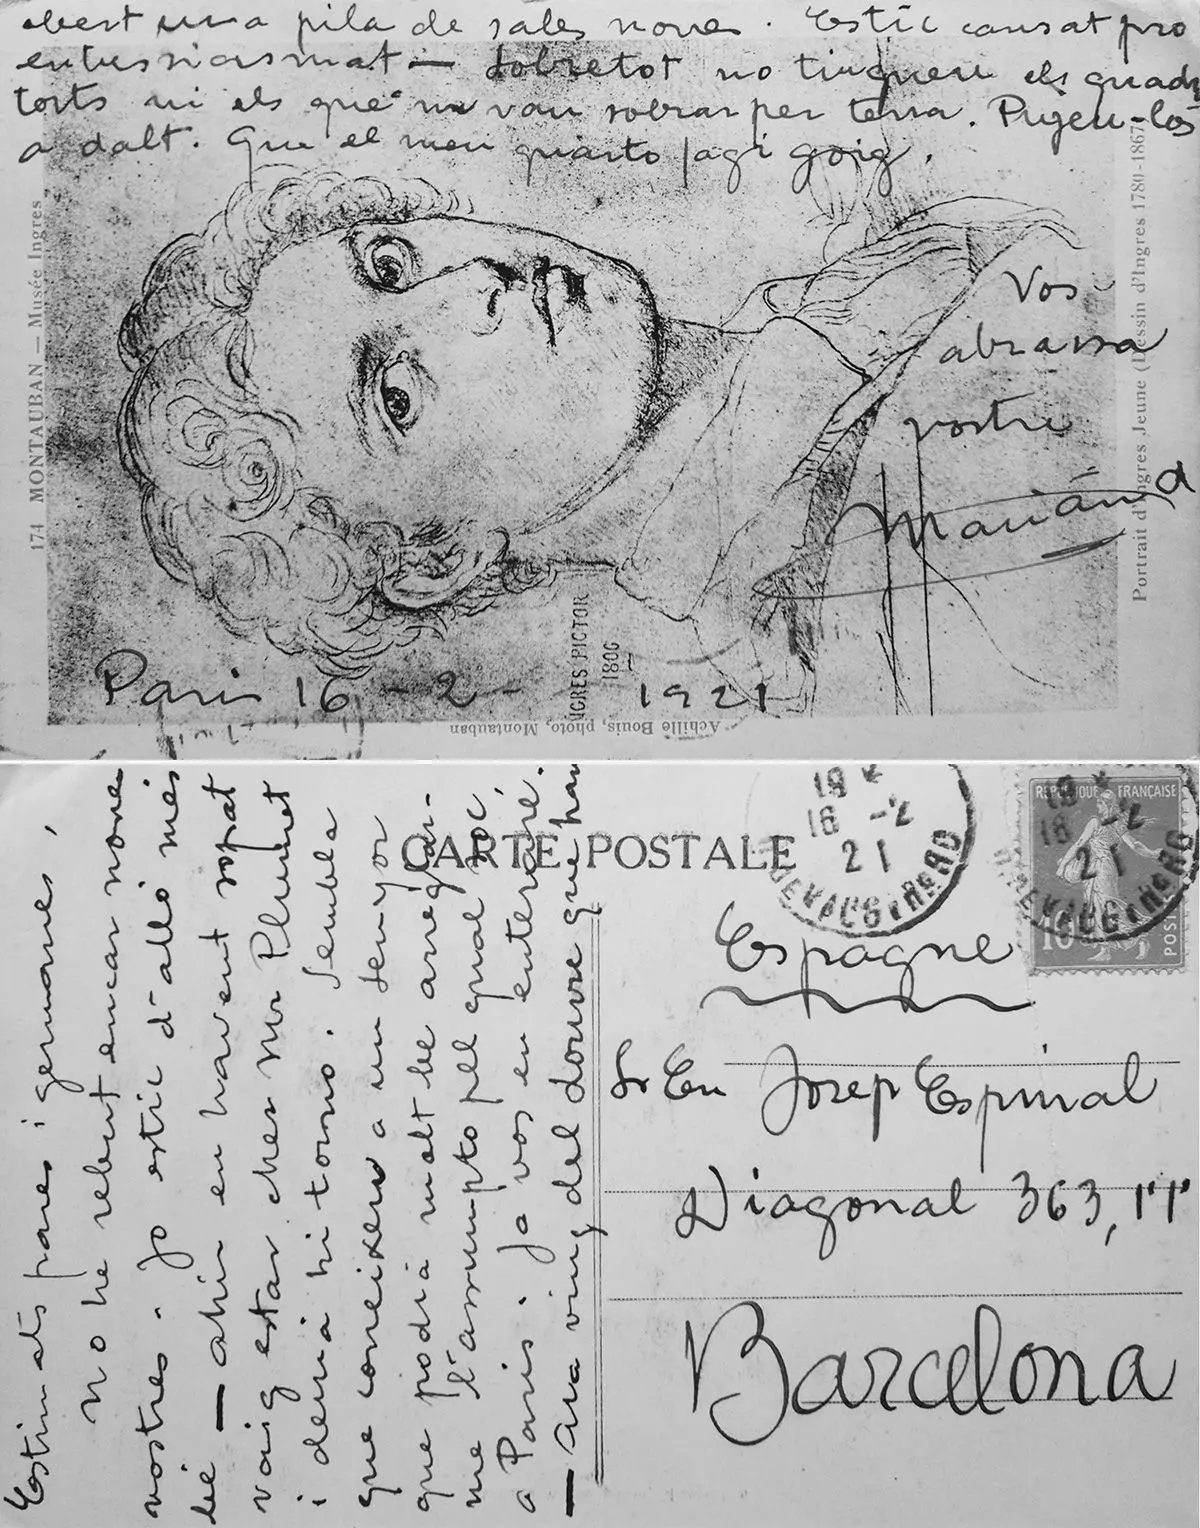 obert una pila de sales noves. Estic cansat pro
entussiasmat — Sobretot no tingueu els quadr
torts ni els que van sobrar per terra. Pugeu-los
a dalt. Que el meu quarto fagi goig.
Vos
abrassa
vostre
Marián
Paris 16 - 2 - 1921
174 MONTAUBAN — Musée Ingres
Portrait d'Ingres Jeune (Dessin d'Ingres 1780-1867)
INGRES PICTOR
1806
Achille Bouis, photo, Montauban
Estimats pares i germanes,
No he rebut encar noves
vostres. Jo estic d'alló més
bé — ahir en havent sopat
vaig estar chez Mr
i demá hi torno. Sembla
que coneixen a un senyor
que podrá molt be arreglar-
me l'assumpto pel qual soc
a Paris. Ja vos en enteraré.
— Ara vinc del Louvre que han
CARTE POSTALE
18 *
16 -2
21
REPUBLIQUE FRANÇAISE
10
POSTES
Espagne
Sr En Josep Espinal
Diagonal 363, 1r 1r
Barcelona